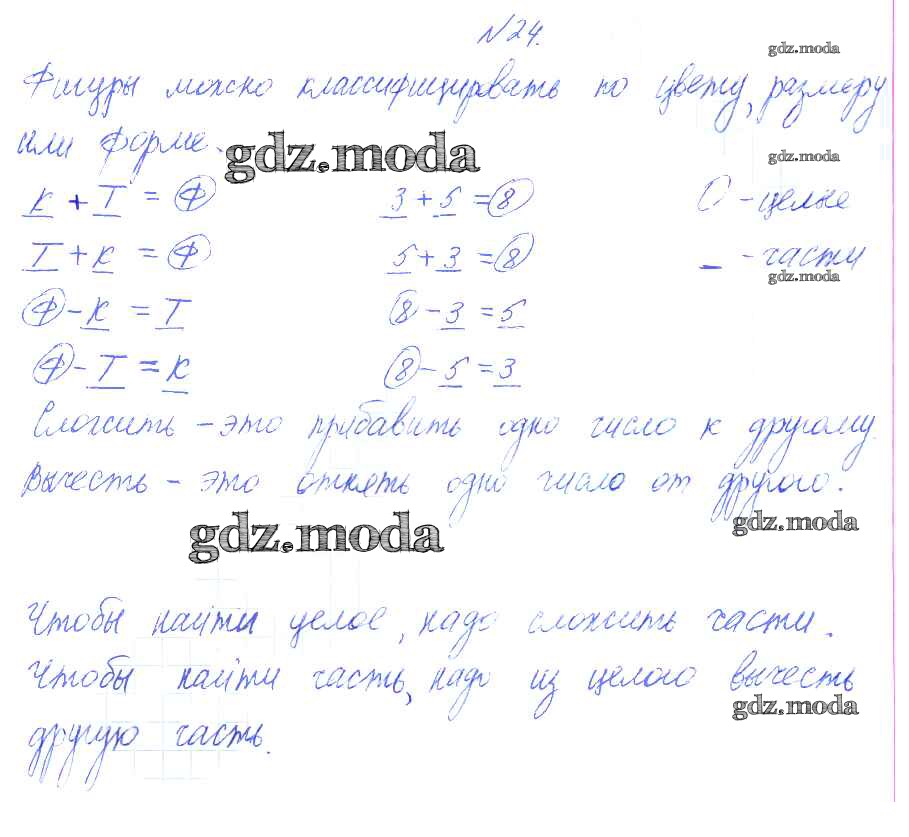 №24.
gdz.moda
Фигуры можно классифицировать по цвету, размеру
или форме.
gdz.moda
gdz.moda
К + Т = Ф 3 + 5 = 8 О - целые
Т + К = Ф 5 + 3 = 8 _ - части
gdz.moda
Ф - К = Т 8 - 3 = 5
Ф - Т = К 8 - 5 = 3
Сложить - это прибавить одно число к другому.
Вычесть - это отнять одно число от другого.
gdz.moda
gdz.moda
Чтобы найти целое, надо сложить части.
Чтобы найти часть, надо из целого вычесть
gdz.moda
другую часть.